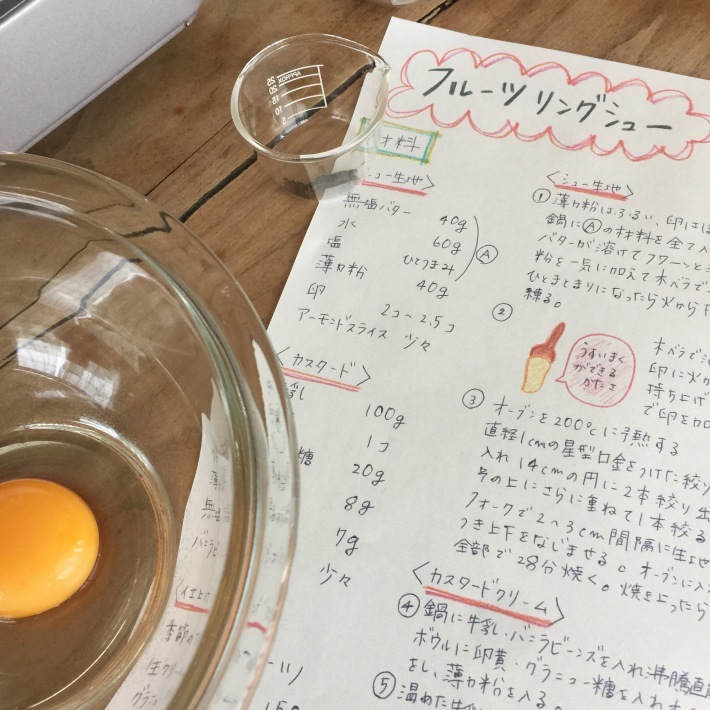 フルーツリングシュー
材料
シュー生地〉
無塩バター 40g
水 60g
塩 ひとつまみ
Ⓐ
薄力粉 40g
卵 2コ~2.5コ
アーモンドスライス 少々
〈カスタード〉
乳 100g
1コ
糖 20g
8g
無塩 7g
バニラビ 少々
〈仕上げ
季節の
生クリー
グラニ
〈シュー生地〉
① 薄力粉はふるい、卵はほ
鍋にⒶの材料を全て入
バターが溶けてフワーッと
粉を一気に加えて木ベラで
ひとまとまりになったら火から
練る。
②
うすいまく
ができる
かたさ
木ベラで
卵に火が
持ち上げ
で卵を加
③ オーブンを200℃に予熱する
直経1cmの星型口金をつけた絞り
入れ14cmの円に2本絞り出
その上にさらに重ねて1本絞る
フォークで2~3cm間隔に生地
つき上下をなじませる。オーブンに入
全部で28分焼く。焼き上ったら
〈カスタードクリーム〉
④ 鍋に牛乳・バニラビーンズを入れ沸騰直
ボウルに卵黄・グラニュー糖を入れ
をし、薄力粉を入る。
⑤ 温めた牛